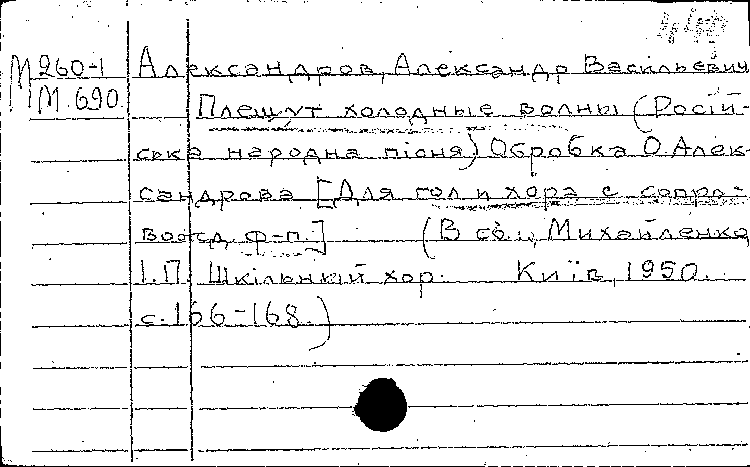 М 260-1 Александров, Александр Васильевич
М. 690. Плещут холодные волны (Росій-
ська народна пісня) Обробка О. Алек-
сандрова [Для гол и хора с сопро-
вожд. ф-п.] (В сб.: Михайленко,
І.П. Шкільный хор. Київ, 1950.
с. 166-168.)